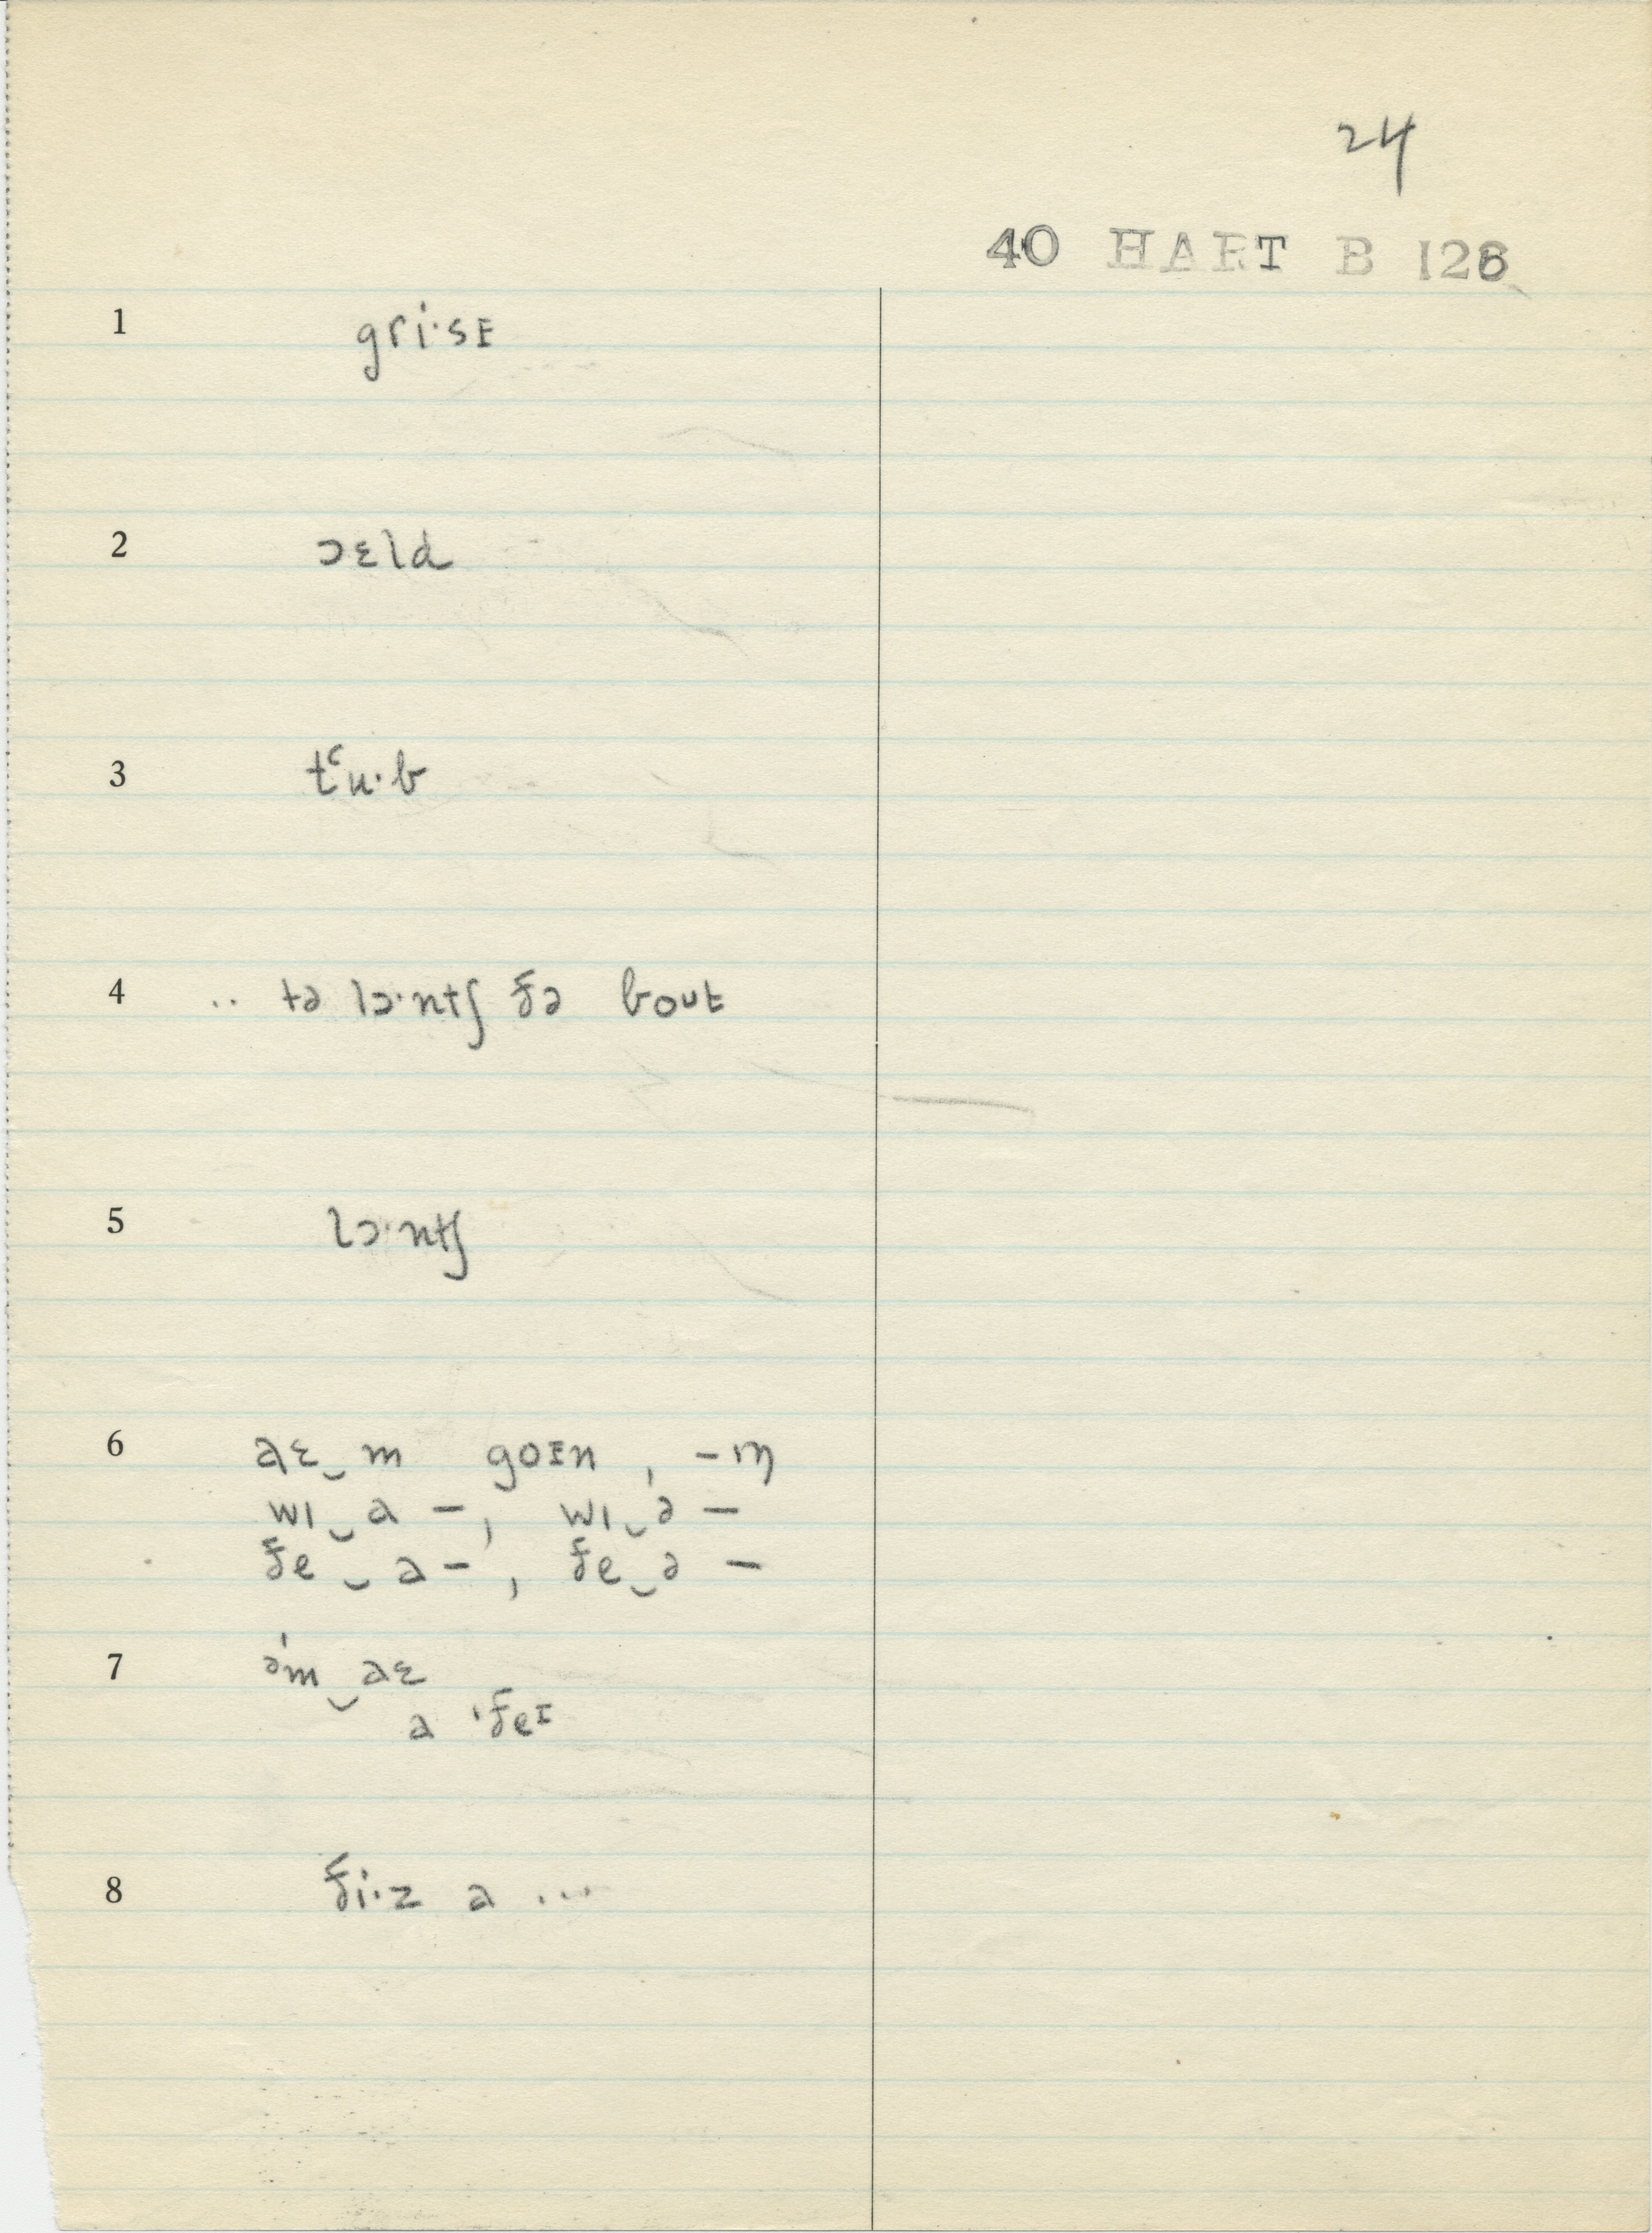 24
40 HART B 126
1 gri·sɪ
2 ɔɛld
3 tʿu·b
4 .. tə lɔ·ntʃ ðə bout
5 lɔ·ntʃ
6 aɛ‿m goɪn , –ɪŋ
wɪ‿a – , wɪ‿ə –
ðe‿a – , ðe‿ə –
7 ə'm‿aɛ
a 'ðeɪ
8 ði·z a ...